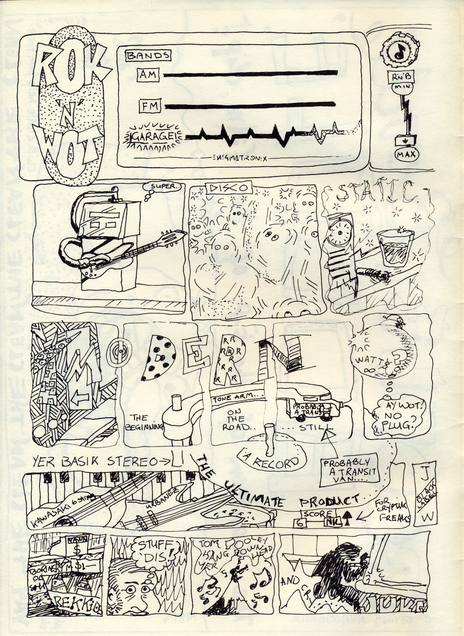 ROK
'N'
WOT
BANDS
AM
FM
GARAGE
ENIGMATRONIX
RN'B
MIN
MAX
SUPER..
DISCO
STATIC
DEBRT
THE
BEGINNING
TONE ARM..
ON
THE
ROAD..
PROBABLY
A TRANSIT
.... STILL
WATT?
AY WOT!
NO
PLUG?
A RECORD
YER BASIK STEREO→
THE ULTIMATE PRODUCT
PROBABLY
A TRANSIT
VAN...
SCORE
6
NIL
FOR
CRYPTIK
FREAKS
W
STUFF
DIS!
TOM DOOLEY
HANG DOWN
YER
HEAD
AND